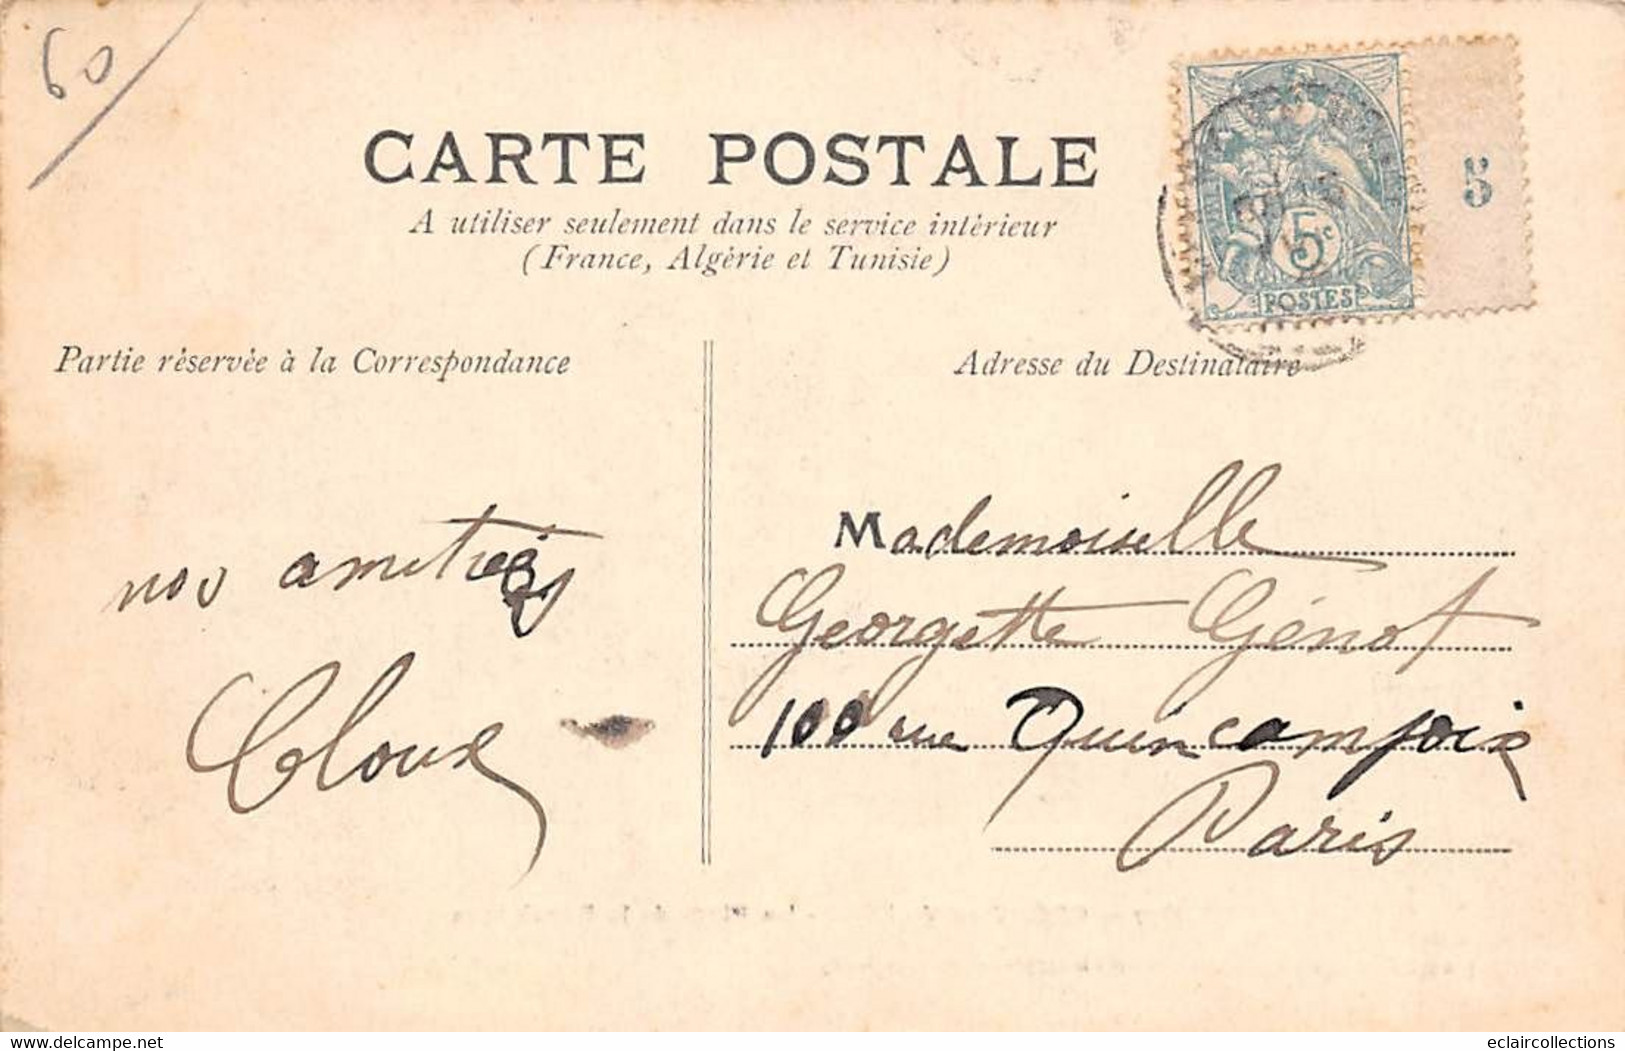 60
CARTE POSTALE
A utiliser seulement dans le service intérieur
(France, Algérie et Tunisie)
5
5c
POSTES
Partie réservée à la Correspondance
Adresse du Destinataire
nos amitiés
Cloux
Mademoiselle
Georgette Génot
100 rue Quincampoix
Paris
www.delcampe.net
eclaircollections